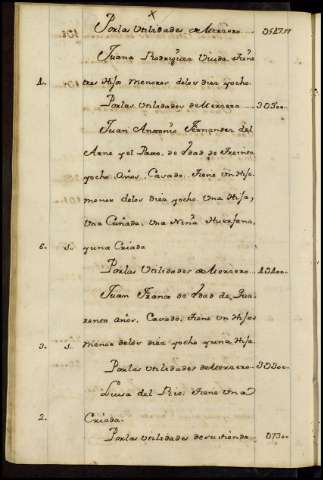 x
Por las Utilidades de Mercero
Juana Rodriguez Viuda tiene
1. tres Hijos menores de los diez yocho
Por las Utilidades de Mercero
Juan Antonio Fernandez del
de Edad de treinta
yocho Años, Casado, tiene un Hijo
menor delos diez yocho, Una Hija,
Una Cuñada, Una Niña Huerfana,
6. s. yuna Criada
Por las Utilidades de Mercero
Juan Franco de Edad de Qua
renta años, Casado, tiene un Hijo
3. s. menor delos diez yocho yuna Hija
Por las Utilidades de Mercero
Luisa del Rio, tiene Una
2. Criada
Por las Utilidades de su tienda